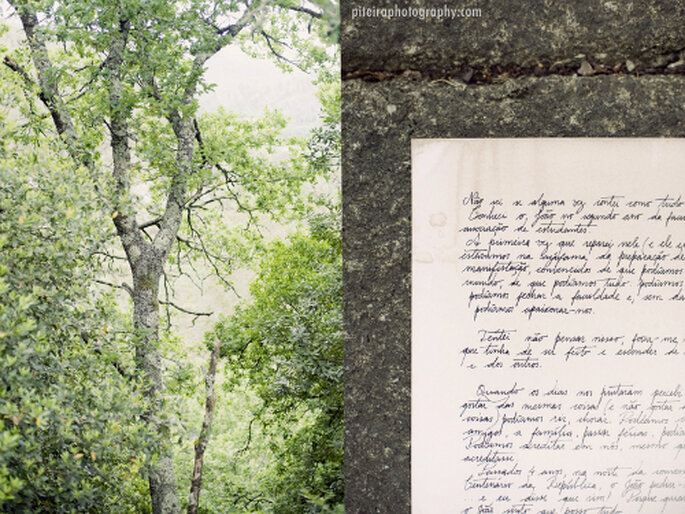 piteiraphotography.com
Não sei se alguma vez contei como tudo
Conheci o João no segundo ano da facu
associação de estudantes.
A primeira vez que reparei nele (e ele
estávamos na lufa-lufa da preparação de
manifestação, convencidos de que podíamos
mundo, de que podíamos tudo. podíamos
podíamos fechar a faculdade e, sem da
podíamos apaixonar-nos.
Tentei não pensar nisso, foca-me
que tinha de ser feito e esconder de
e dos outros.
Quando os dias nos juntaram percebi
gostar das mesmas coisas (e não gostar
coisas) podíamos rir, chorar. Podíamos
amigos, a família, passar férias, podía
Podíamos acreditar em nós, mesmo q
acreditasse.
Passados 4 anos, na noite da comem
Centenário da República, o João pediu-
... e eu disse que sim! Porque quan
o João sinto que posso tudo.